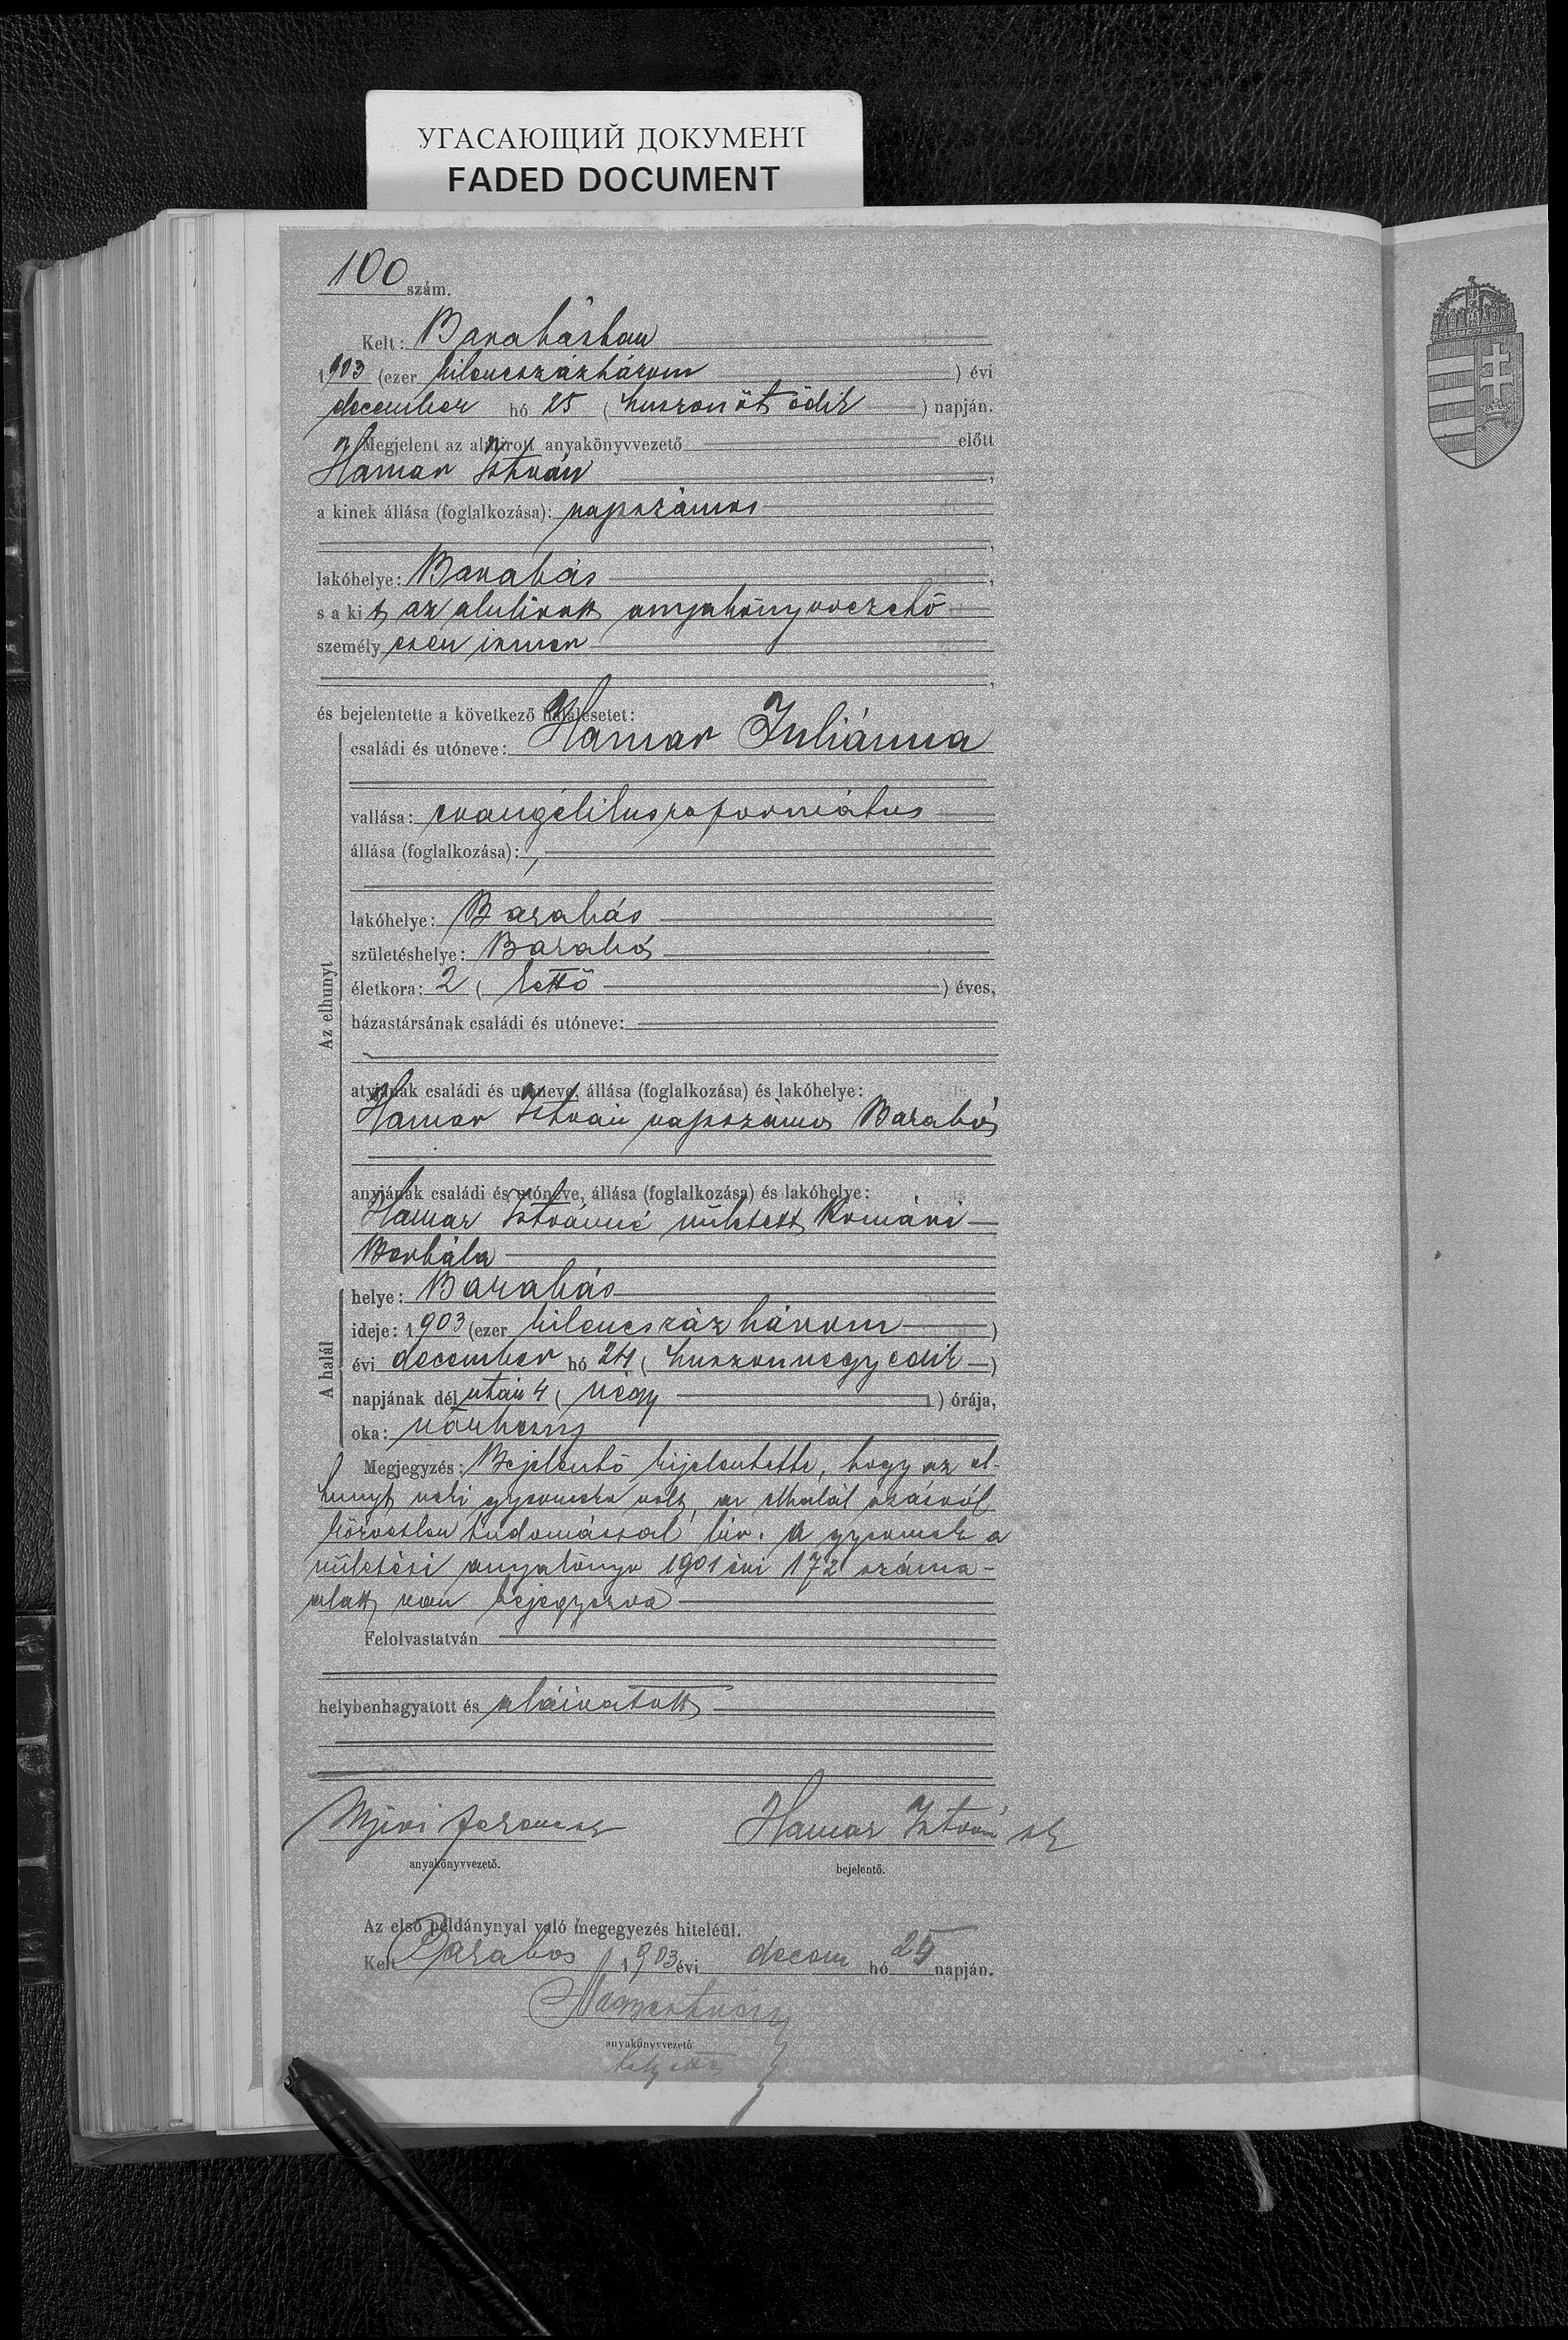 УГАСАЮЩИЙ ДОКУМЕНТ
FADED DOCUMENT
100 szám.
Kelt: Barabásban
1903 (ezer kilencszázhárom ) évi
december hó 25 (huszonöt ödik ) napján.
Megjelent az alulirott anyakönyvvezető előtt
Hamar István ,
a kinek állása (foglalkozása): napszámos
,
lakóhelye: Barabás ,
s a kit az alulirott anyakönyvvezető
személyesen ismer
,
és bejelentette a következő halálesetet:
családi és utóneve: Hamar Juliánna
vallása: evangélikus református
állása (foglalkozása):
lakóhelye: Barabás
születéshelye: Barabás
életkora: 2 (kettő ) éves,
Az elhunyt
házastársának családi és utóneve:
atyjának családi és utóneve, állása (foglalkozása) és lakóhelye:
Hamar István napszámos Barabás
anyjának családi és utóneve, állása (foglalkozása) és lakóhelye:
Hamar Istvánné született Komári
Borbála
helye: Barabás
ideje: 1903 (ezer kilencszáz három )
évi december hó 24 (huszonnegyedik )
A halál
napjának dél után 4 (négy ) órája,
oka: vörheny
Megjegyzés: Bejelentő kijelentette, hogy az el-
hunyt neki gyermeke volt, az elhalálozásról
közvetlen tudomással bir. A gyermek a
születési anyakönyv 1901 évi 172 száma
alatt van bejegyezve
Felolvastatván
helybenhagyatott és aláiratott
Ferencz Hamar István sk
anyakönyvvezető. bejelentő.
Az első példánynyal való megegyezés hiteléül.
Kelt Barabás 1903 évi decem hó 25 napján.
anyakönyvvezető
helyettes